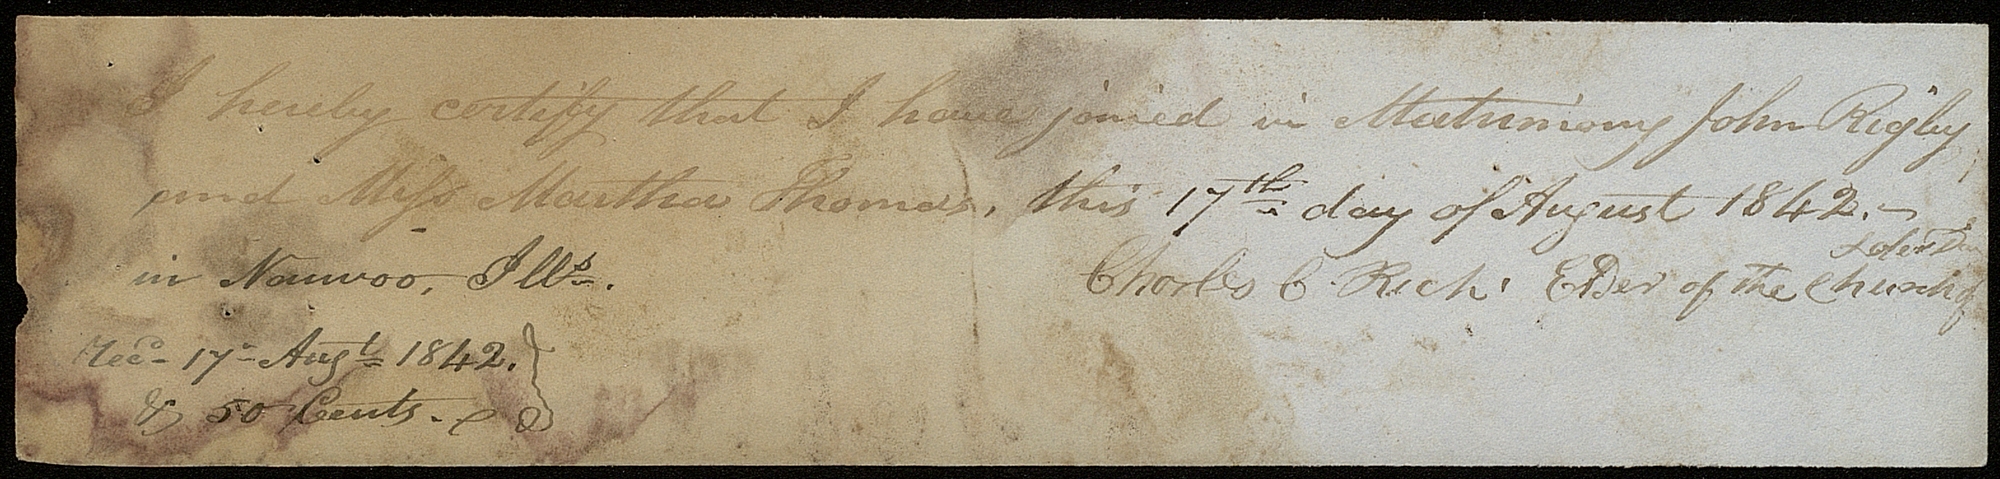 I hereby certify that I have joined in Matrimony John Rigby
and Miss Martha Thomas, this 17th day of August 1842.–
in Nauvoo, Ills.
Charles C. Rich. Elder of the Church of
Recd 17 Augt 1842.
& 50 Cents.